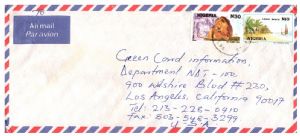 Air mail
Par avion
NIGERIA N30
NIGERIA
Green Card information,
Department NAT-100
900 Wilshire Blvd # 230,
Los Angeles, California 90017
Tel: 213-228-0910
Fax 503-545-3299